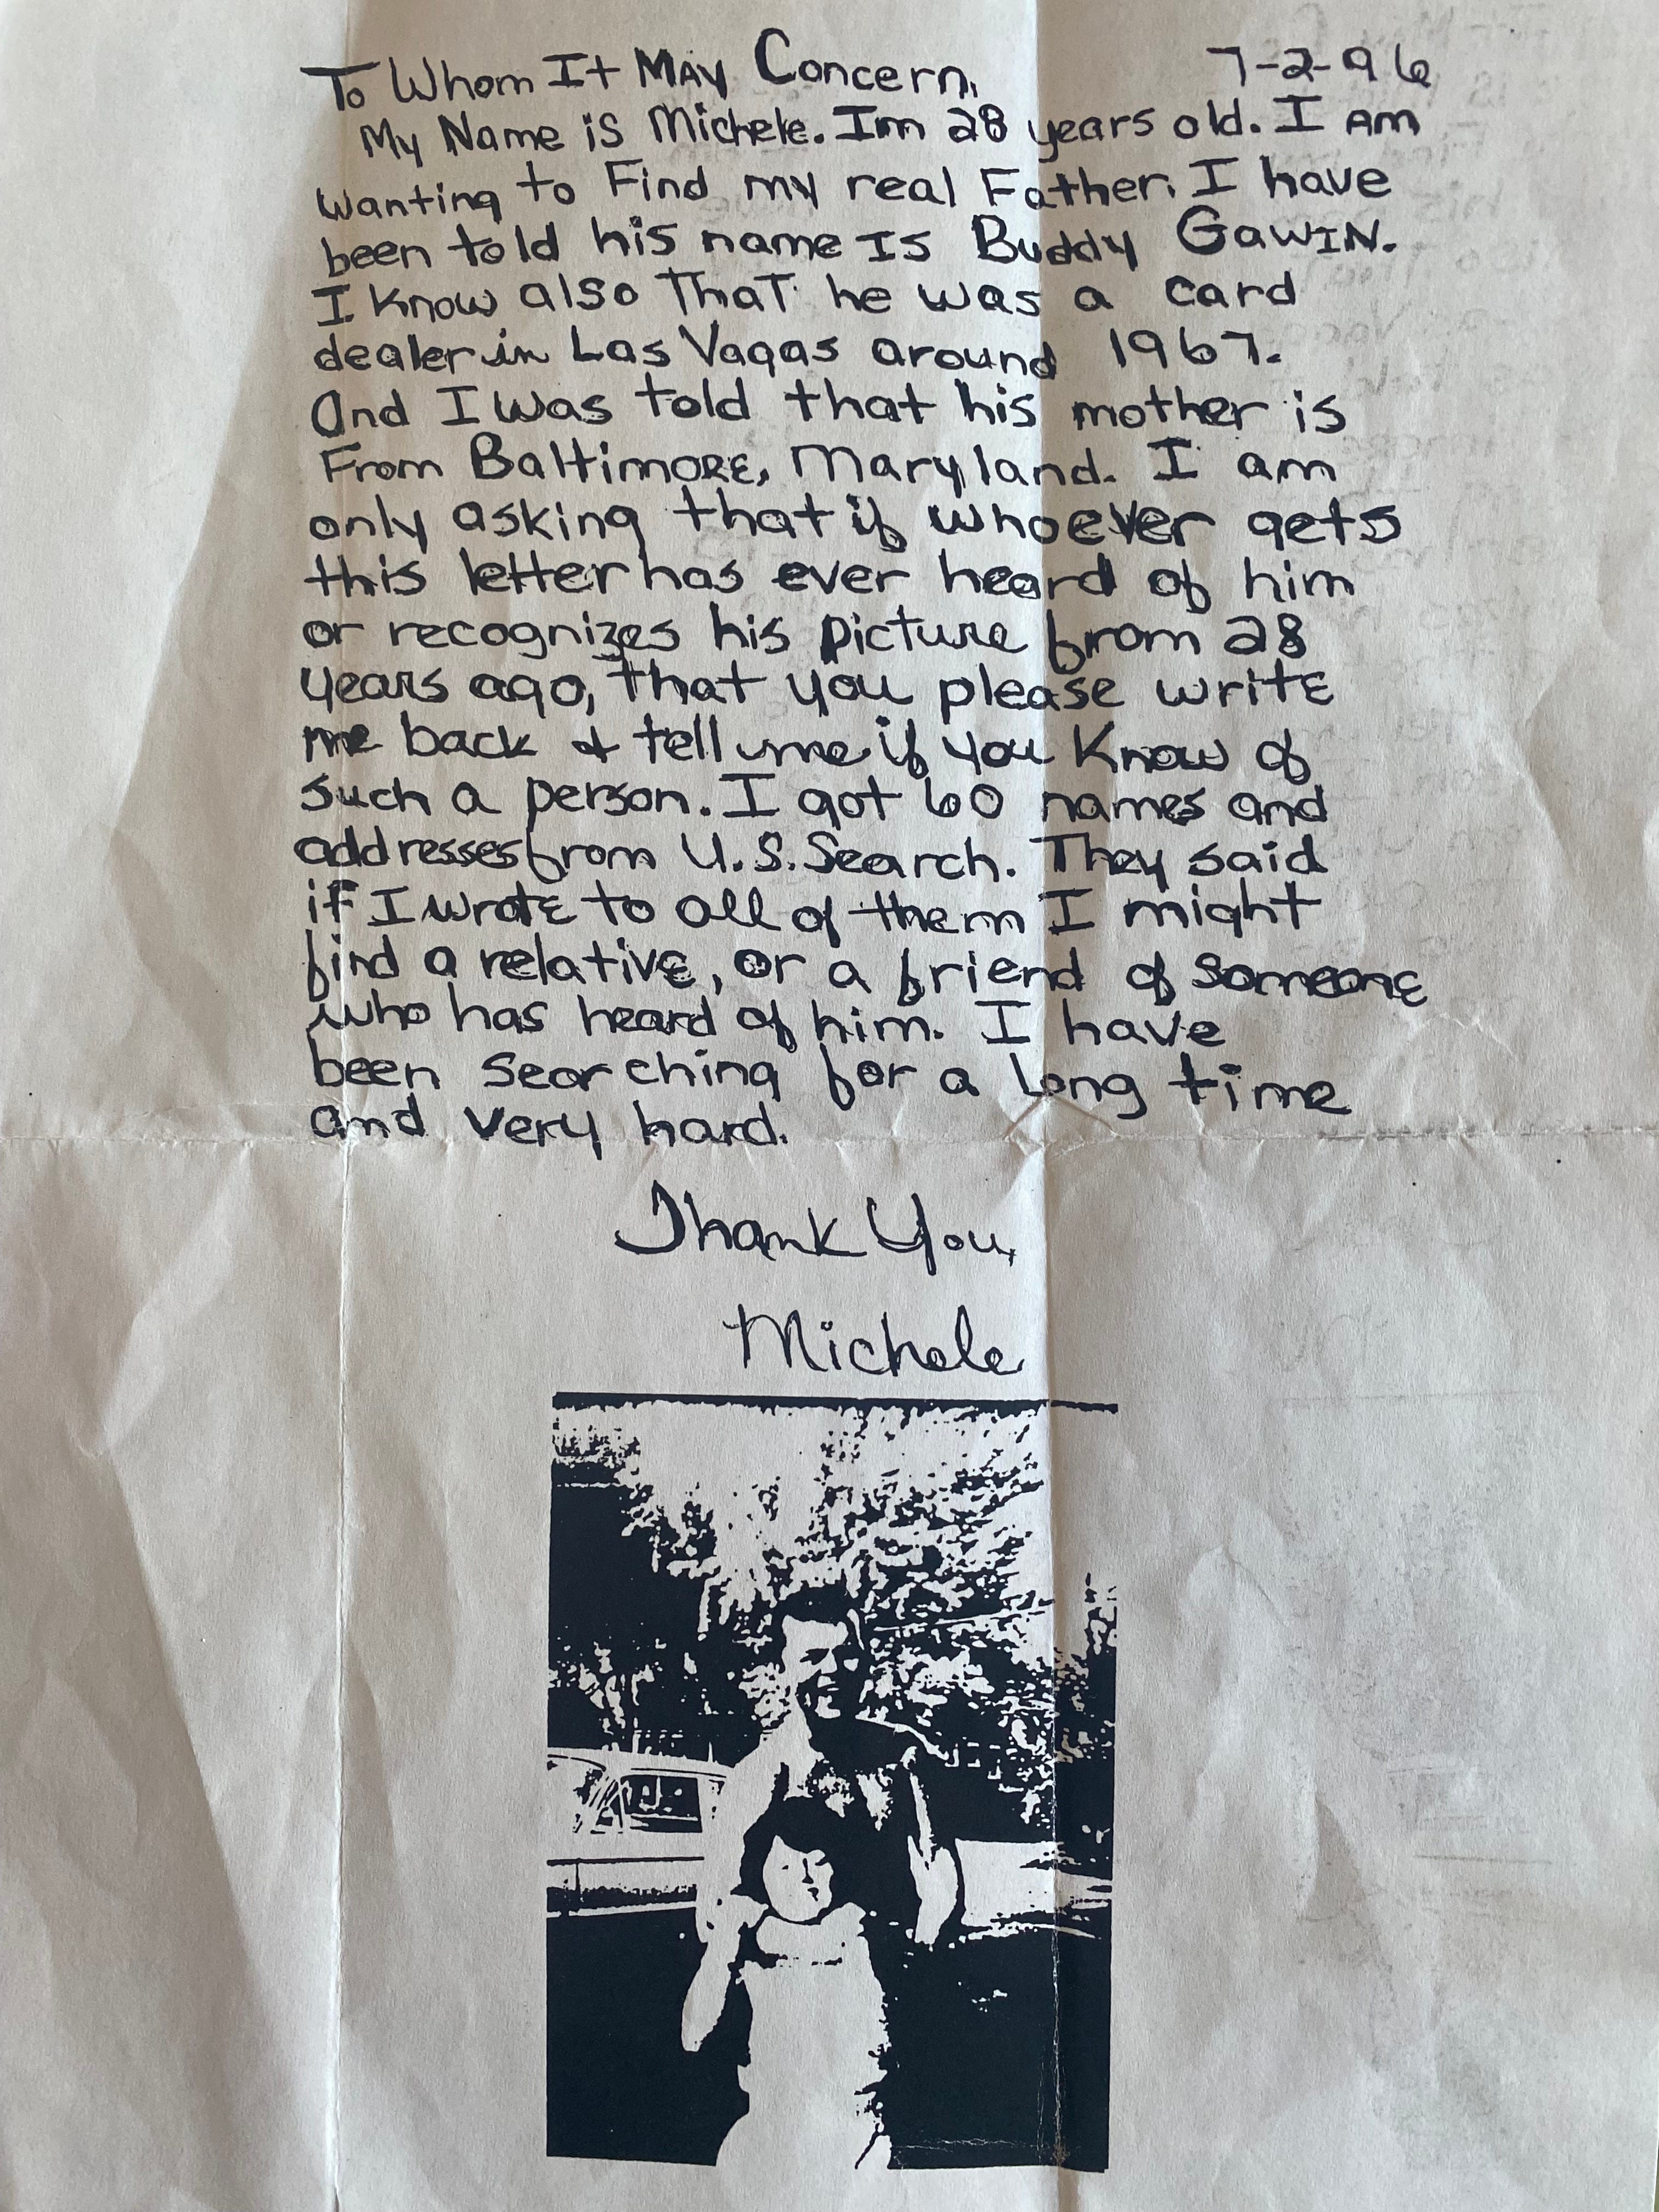 To Whom It May Concern, 7-2-96
My Name is Michele. Im 28 years old. I am
wanting to Find my real Father. I have
been told his name is Buddy Gawin.
I know also That he was a card
dealer in Las Vagas around 1967.
And I was told that his mother is
From Baltimore, Maryland. I am
only asking that if whoever gets
this letter has ever heard of him
or recognizes his picture from 28
years ago, that you please write
me back & tell me if you Know of
such a person. I got 60 names and
addresses from U.S. Search. They said
if I wrote to all of them I might
find a relative, or a friend of someone
who has heard of him. I have
been searching for a long time
and very hard.
Thank You,
Michele